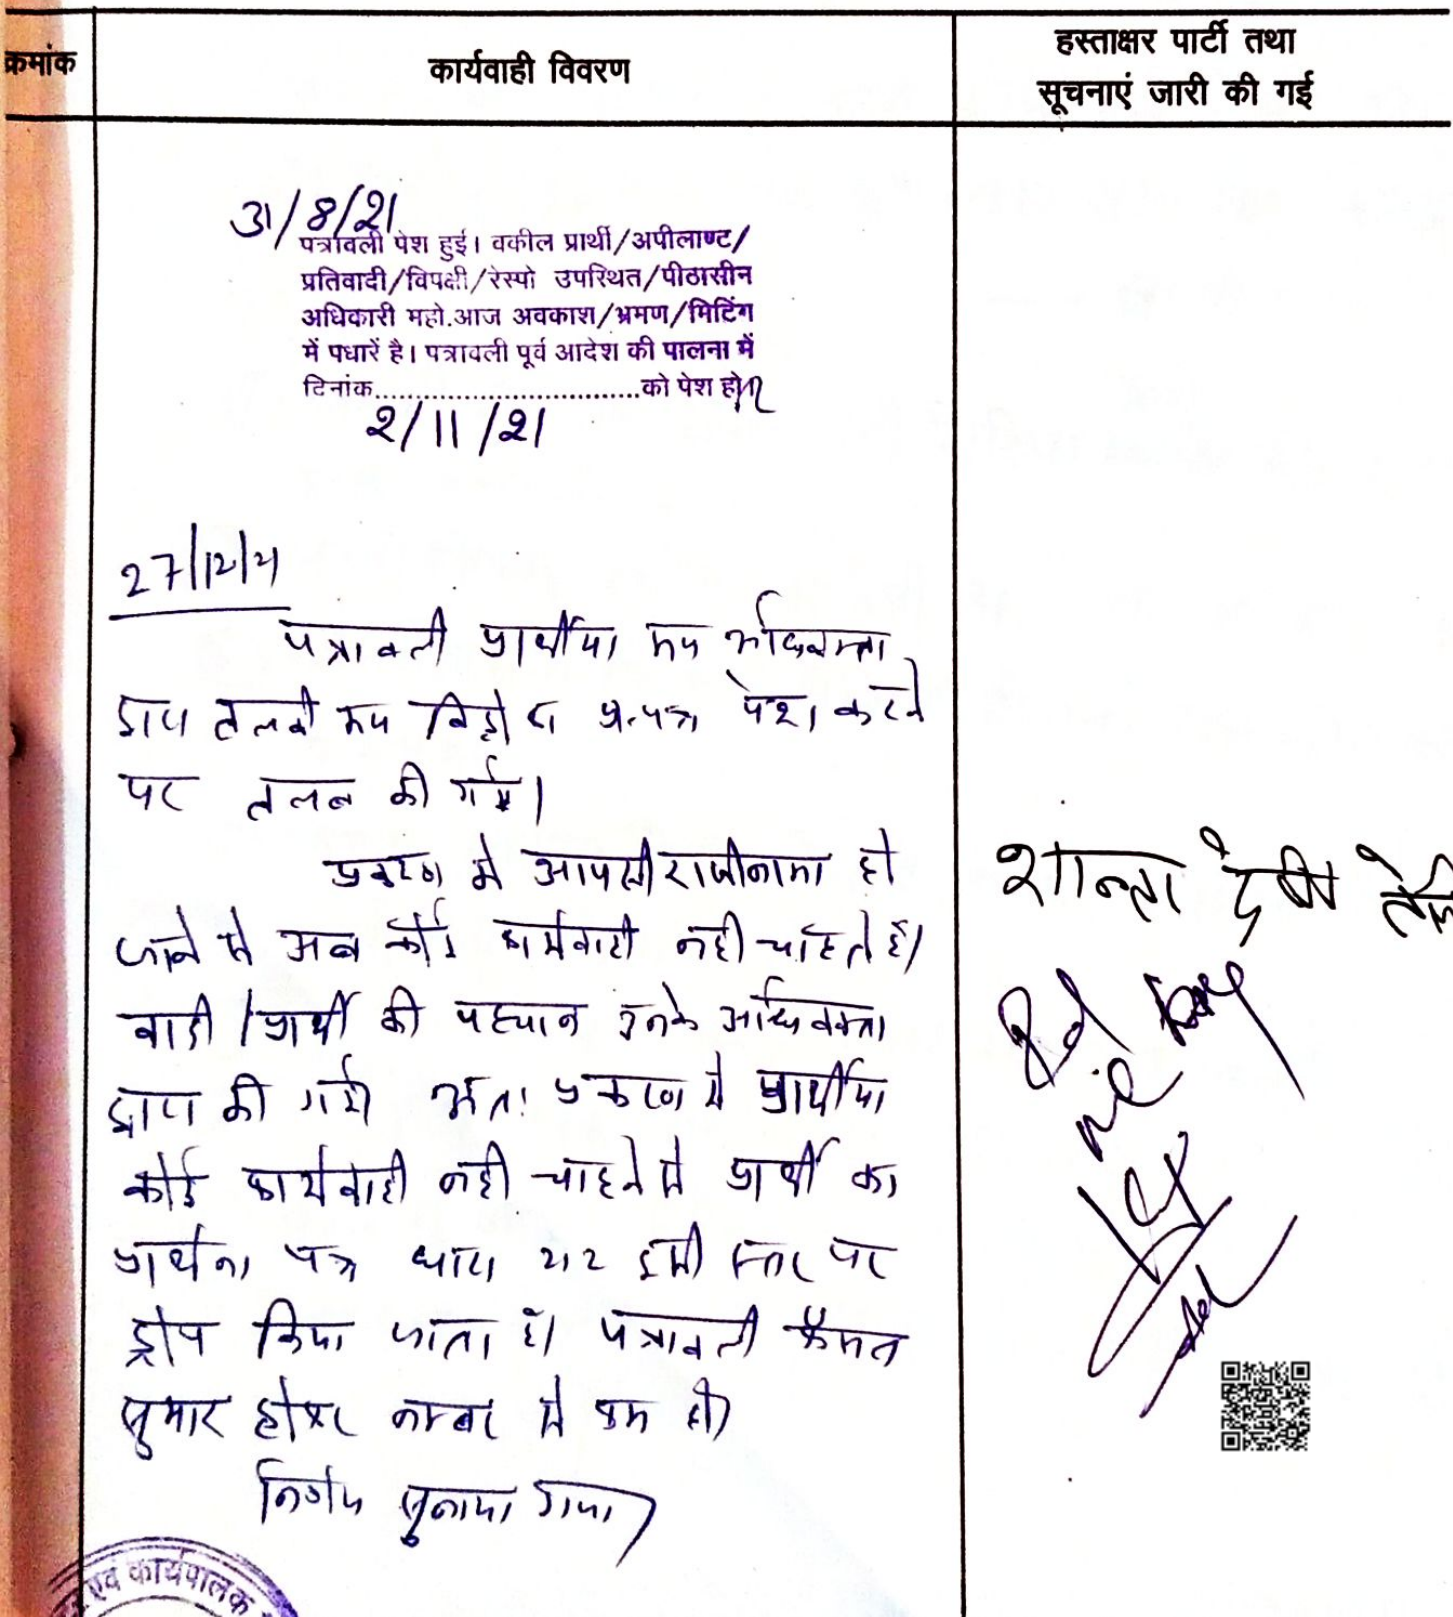 क्रमांक
कार्यवाही विवरण
हस्ताक्षर पार्टी तथा
सूचनाएं जारी की गई
31/8/21
पत्रावली पेश हुई। वकील प्रार्थी/अपीलाण्ट/
प्रतिवादी/विपक्षी/रेस्पो उपस्थित/पीठासीन
अधिकारी महो.आज अवकाश/भ्रमण/मिटिंग
में पधारें है। पत्रावली पूर्व आदेश की पालना में
दिनांक................................को पेश हो
2/11/21
27/12/21
पत्रावली प्रार्थीया मय अधिवक्ता
द्वारा तलबी मय विड्रो प्रा.पत्र पेश करने
पर तलब की गई।
प्रकरण में आपसी राजीनामा हो
जाने से अब कोई कार्यवाही नही चाहते है।
वादी/प्रार्थी की पहचान उनके अधिवक्ता
द्वारा की गयी अतः प्रकरण मे प्रार्थीया
कोई कार्यवाही नही चाहने से प्रार्थी का
प्रार्थना पत्र धारा 212 इसी स्तर पर
ड्रोप किया जाता है। पत्रावली फैसल
सुमार होकर नम्बर से कम हो।
निर्णय सुनाया गया।
शान्ता देवी
एवं कार्यपालक